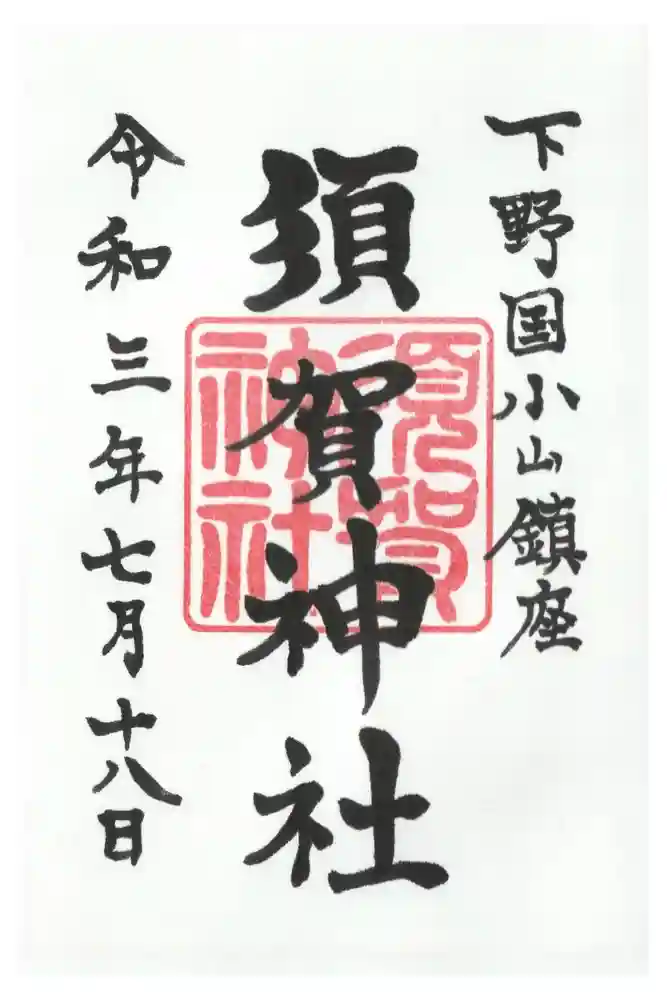 下野国小山鎮座
須賀神社
須賀
神社
令和三年七月十八日